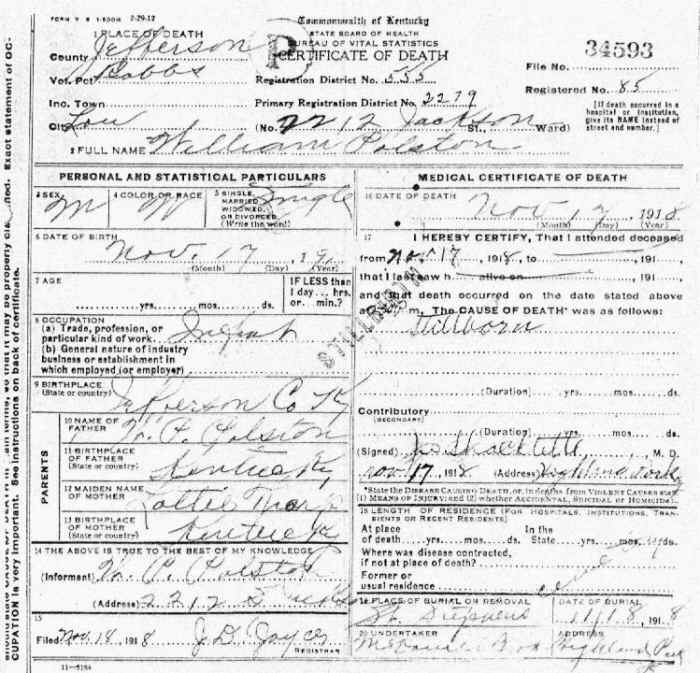 FORM V. S. 1-500M 7-29-12
Commonwealth of Kentucky
STATE BOARD OF HEALTH
BUREAU OF VITAL STATISTICS
CERTIFICATE OF DEATH
1 PLACE OF DEATH
County Jefferson
Vot. Pct. Cobbs
Inc. Town
City Lou
File No. 34593
Registration District No. 555
Registered No. 85
Primary Registration District No. 2279
(No. 2212 Jackson St., Ward)
[If death occurred in a hospital or institution, give its NAME instead of street and number.]
2 FULL NAME William Polston
PERSONAL AND STATISTICAL PARTICULARS
3 SEX M
4 COLOR OR RACE W
5 SINGLE, MARRIED, WIDOWED, OR DIVORCED (Write the word) Single
6 DATE OF BIRTH
Nov. 17, 191
(Month) (Day) (Year)
7 AGE
yrs. mos. ds.
IF LESS than 1 day... hrs. or min.?
8 OCCUPATION
(a) Trade, profession, or particular kind of work Infant
(b) General nature of industry business or establishment in which employed (or employer)
9 BIRTHPLACE
(State or country) Jefferson Co Ky
PARENTS
10 NAME OF FATHER W. P. Polston
11 BIRTHPLACE OF FATHER (State or country) Kentucky
12 MAIDEN NAME OF MOTHER
13 BIRTHPLACE OF MOTHER (State or country) Kentucky
14 THE ABOVE IS TRUE TO THE BEST OF MY KNOWLEDGE
(Informant) W. P. Polston
(Address) 2212
15
Filed Nov. 18 1918 J. D.
REGISTRAR
11-5184
MEDICAL CERTIFICATE OF DEATH
16 DATE OF DEATH
Nov 17 1918
(Month) (Day) (Year)
17 I HEREBY CERTIFY, That I attended deceased
from Nov 17 1918, to 191
that I last saw h alive on 191
and that death occurred on the date stated above
at m. The CAUSE OF DEATH* was as follows:
Stillborn
STILLBORN
(Duration) yrs. mos. ds.
Contributory
(SECONDARY)
(Duration) yrs. mos. ds.
(Signed) M. D.
Nov 17 1918 (Address)
*State the DISEASE CAUSING DEATH, or, in deaths from VIOLENT CAUSES state (1) MEANS OF INJURY and (2) whether ACCIDENTAL, SUICIDAL or HOMICIDAL.
18 LENGTH OF RESIDENCE (FOR HOSPITALS, INSTITUTIONS, TRANSIENTS OR RECENT RESIDENTS)
At place of death yrs. mos. ds. In the State yrs. mos. ds.
Where was disease contracted, if not at place of death?
Former or usual residence
19 PLACE OF BURIAL OR REMOVAL
DATE OF BURIAL
11/18 1918
20 UNDERTAKER
ADDRESS
Highland Park